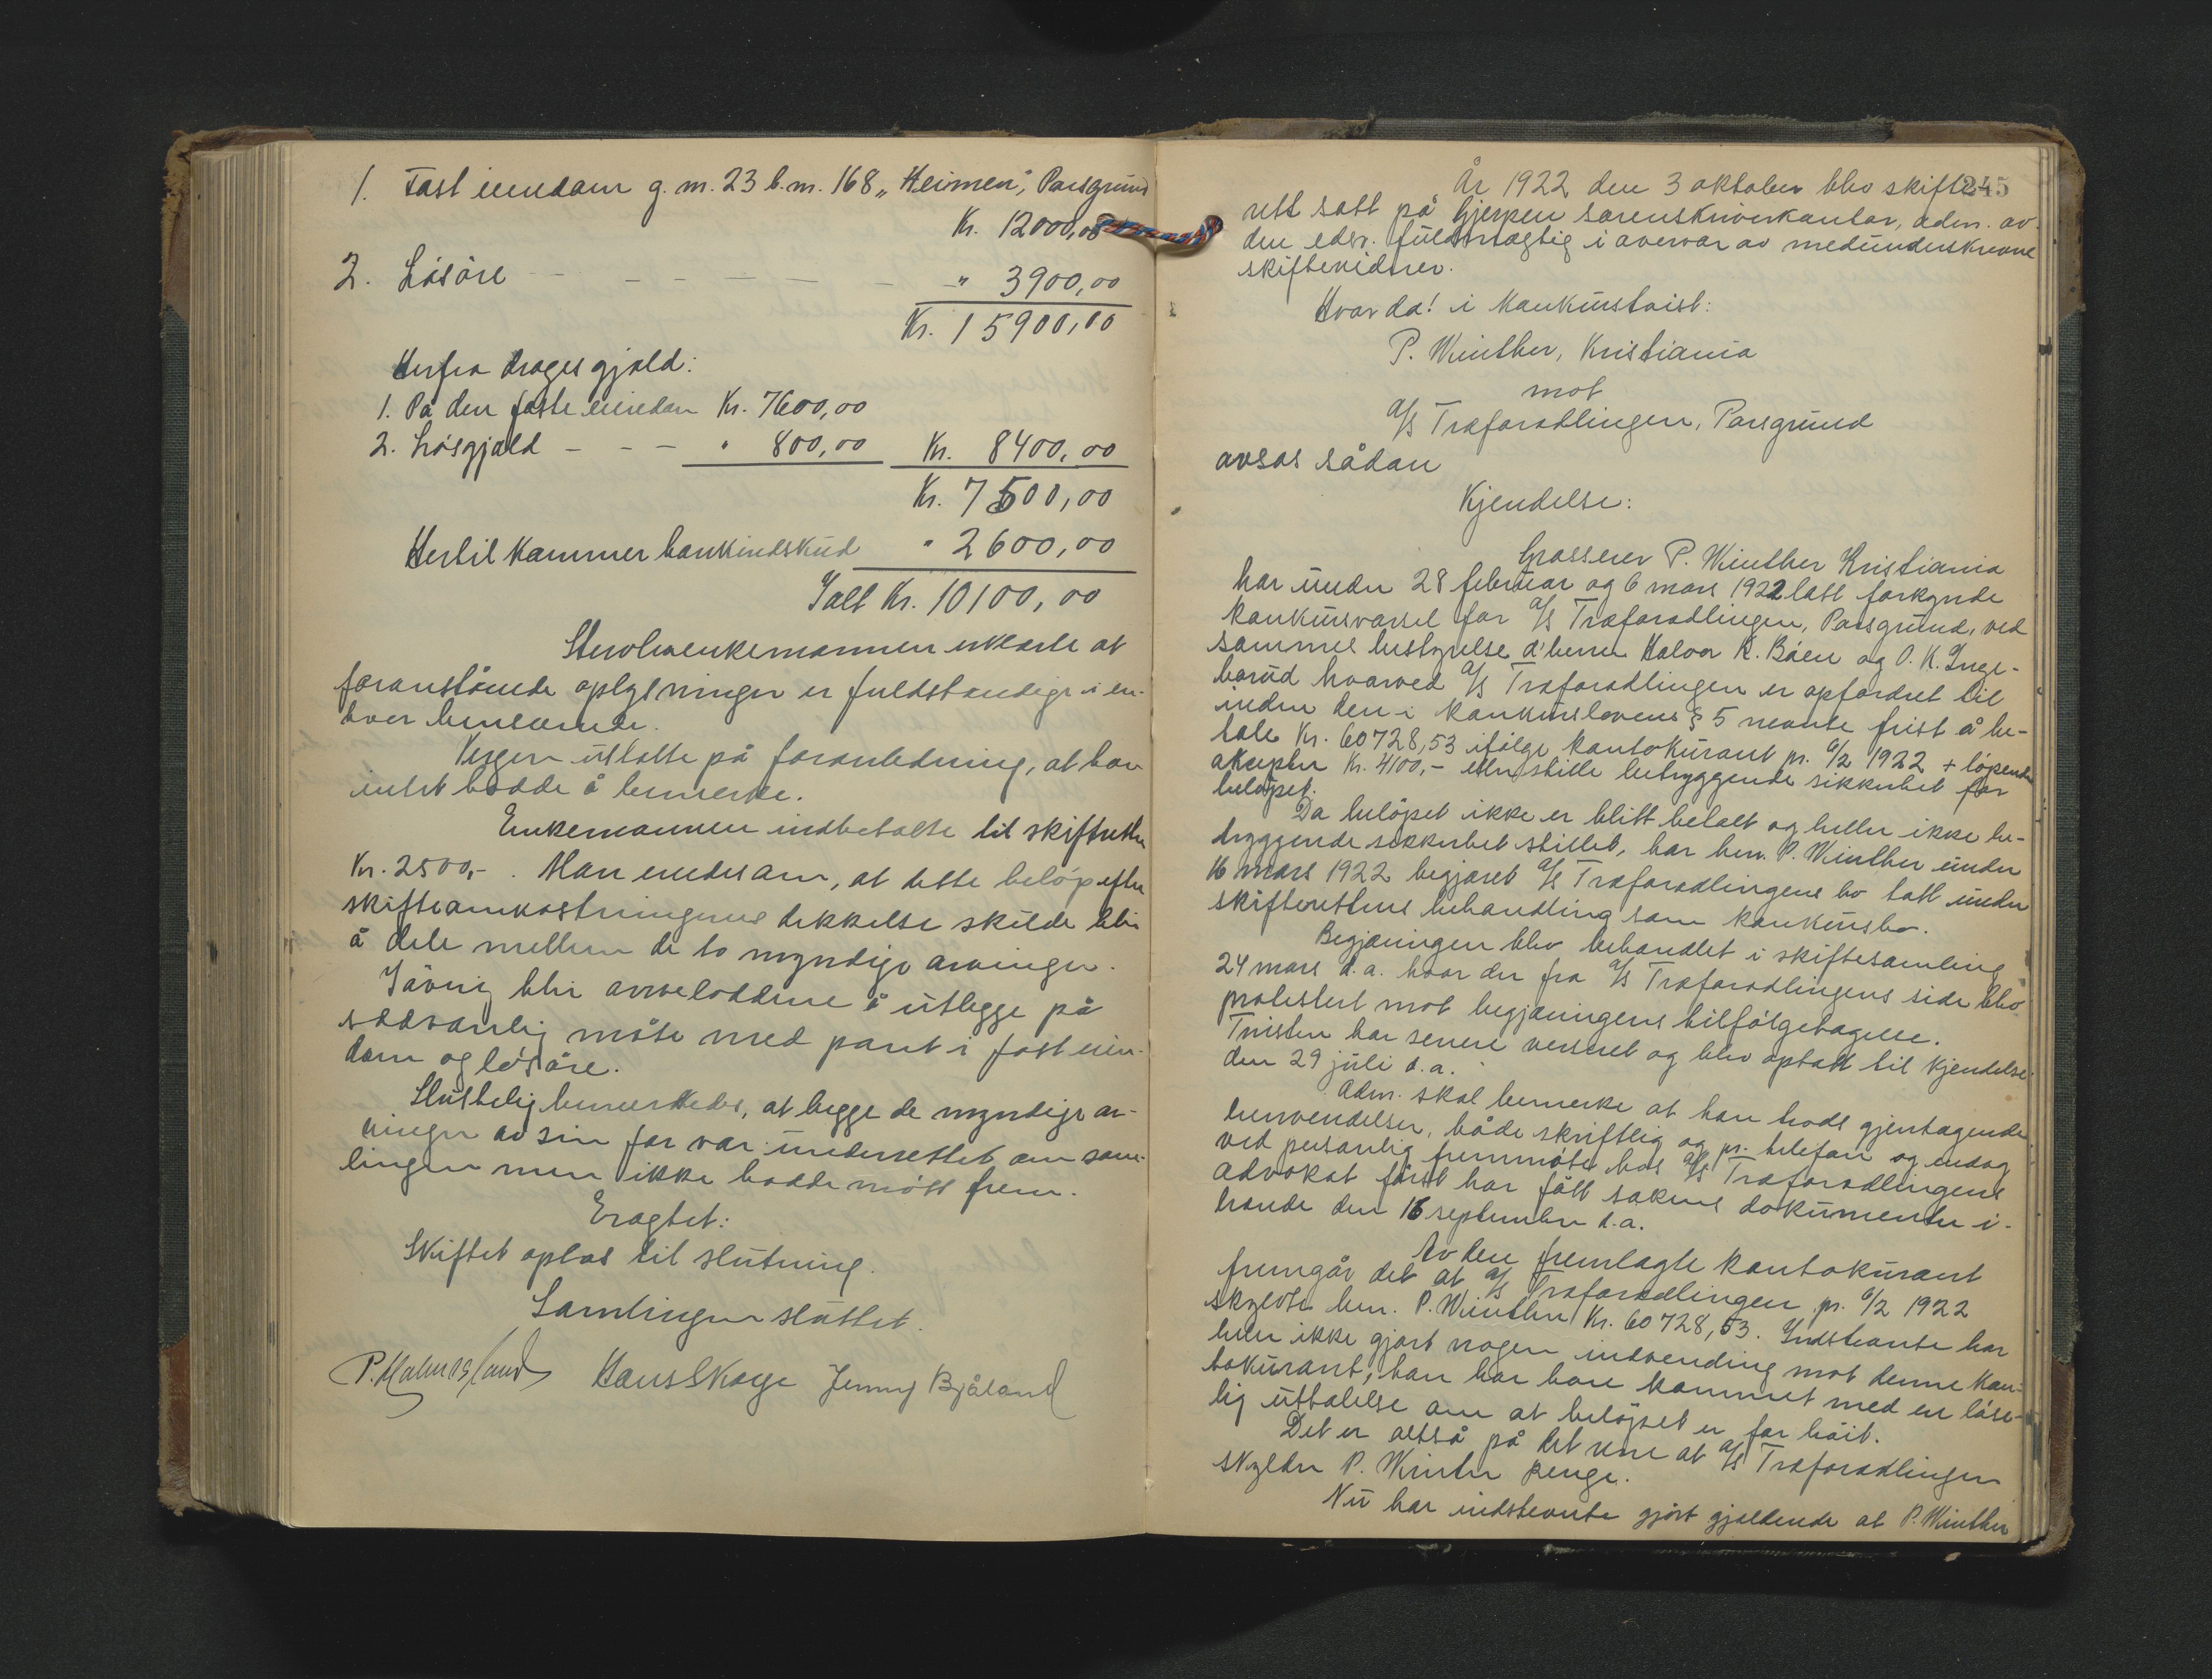 1. Fast eiendom g. nr. 23 b. nr. 168 „Heimen", Porsgrund
Kr. 12000,00
2. Løsøre - - - - - - " 3900,00
Kr. 15900,00
Herfra drages gjæld:
1. På den faste eiendom Kr. 7600,00
2. Løsgjæld - - - " 800,00 Kr. 8400,00
Kr. 7500,00
Hertil kommer bankindskud " 2600,00
Ialt Kr. 10100,00
Stervboenkemannen erklærte at
foranstående oplysninger er fuldstændige i en-
hver henseende.
Vergen uttalte på foranledning, at han
intet hadde å bemerke.
Enkemannen indbetalte til skifteretten
Kr. 2500,-. Man enedes om, at dette beløp efter
skifteomkostningenes dekkelse skulde bli
å dele mellem de to myndige arvinger.
Iøvrig blir arveloddene å utlegge på
sedvanlig måte med pant i fast eien-
dom og løsøre.
Sluttelig bemerkedes, at begge de myndige ar-
vinger av sin far var underrettet om sam-
lingen men ikke hadde møtt frem.
Eragtet:
Skiftet optas til slutning.
Samlingen sluttet.
Hans Skoge Jenny Bjåland
245
År 1922 den 3 oktober blev skifte-
rett satt på Gjerpen sorenskriverkontor, adm. av
den edsv. fuldmægtig i overvær av medunderskrevne
skiftevidner.
Hvor da! i konkurstvist:
P. Winther, Kristiania
mot
A/S Træforædlingen, Porsgrund
avsas sådan
Kjendelse:
Grosserer P. Winther Kristiania
har under 28 februar og 6 mars 1922 latt forkynde
konkursvarsel for A/S Træforædlingen, Porsgrund, ved
sammes bestyrelse d'herrer Halvor R. Bøen og O. K. Inge-
borud hvorved A/S Træforædlingen er opfordret til
inden den i konkurslovens § 5 nevnte frist å be-
tale Kr. 60728,53 ifølge kontokurant pr. 6/2 1922 + løpende
aksepter Kr. 4100,- eller stille betryggende sikkerhet for
beløpet.
Da beløpet ikke er blitt betalt og heller ikke be-
tryggende sikkerhet stillet, har herr P. Winther under
16 mars 1922 begjæret A/S Træforædlingens bo tatt under
skifterettens behandling som konkursbo.
Begjæringen blev behandlet i skiftesamling
24 mars d.a. hvor der fra A/S Træforædlingens side blev
protestert mot begjæringens tilfølgetagelse.
Tvisten har senere versert og blev optatt til kjendelse
den 29 juli d.a.
Adm. skal bemerke at han trods gjentagende
henvendelser, både skriftlig og pr. telefon og endog
ved personlig fremmøte hos A/S Træforædlingens
advokat først har fått sakens dokumenter i-
hænde den 16 september d.a.
Av den fremlagte kontokurant
fremgår det at A/S Træforædlingen pr. 6/2 1922
skyldte herr. P. Winther Kr. 60728,53. Indstevnte har
heller ikke gjort nogen indvending mot denne kon-
tokurant, han har bare kommet med en løse-
lig uttalelse om at beløpet er for høit.
Det er altså på det rene at A/S Træforædlingen
skylder P. Winther penge.
Nu har indstevnte gjort gjældende at P. Winther